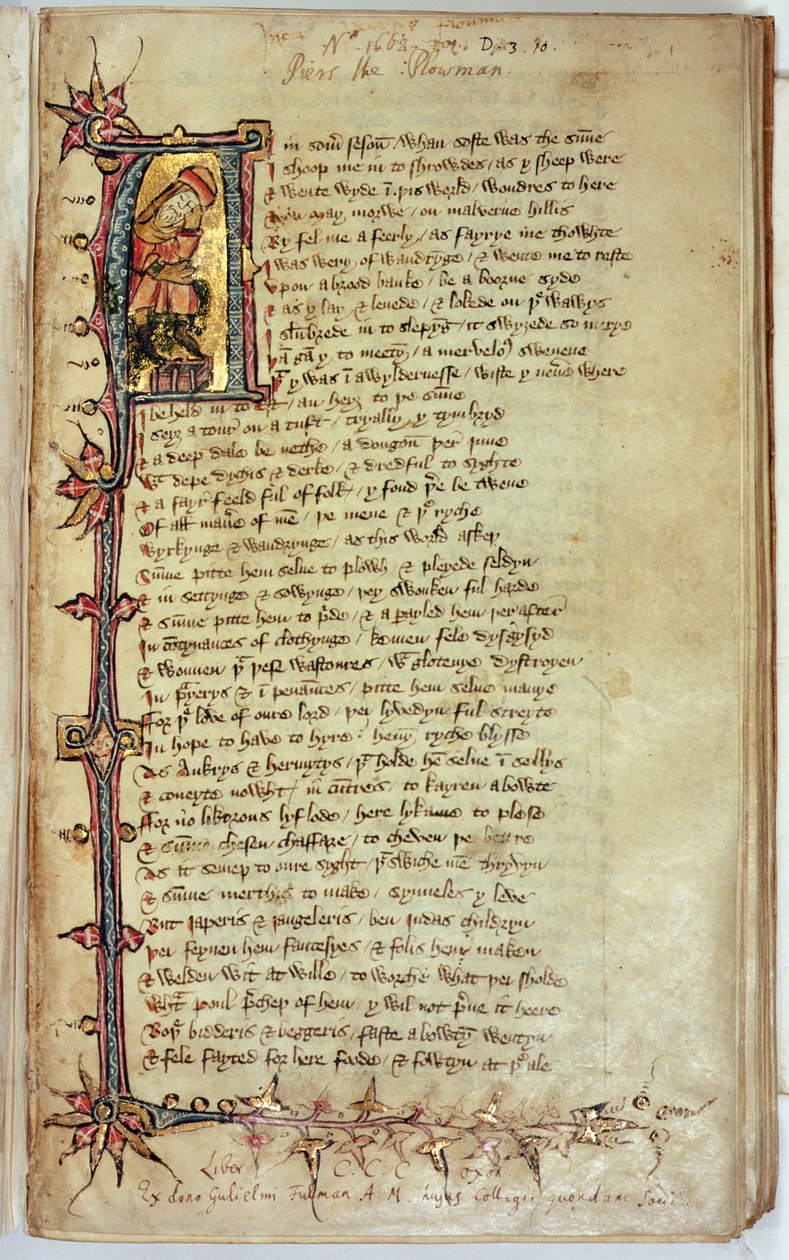 No. 1668. D. 3. 10.
Piers the Plowman.
in som̄ seson̄ / whan softe was the sūne
I shoop me in to shrowdes / as y sheep were
& wente wyde ī þis world / wondres to here
may morwe / on malverne hillis
By fel me a ferly / as fayrye me thowhte
I was wery of wandryge / & wente me to reste
vpon a brood banke / be a boorne syde
& as y lay & lenede / & lokede on þe wawys
I slūbrede in to slepyḡ / it swyȝede so merye
þā gā y to meetyn̄ / a mervelos swevene
þt y was ī a wyldernesse / wiste y neue where
I be held in to est / an heyȝ to þe sūne
I seyȝ a tour on a tuft / tryally y tymbryd
& a deep dale be nethe / a dongon̄ þer inne
Wt depe dychis & derke / & dredful to syghte
& a fayr feeld ful of folk / y fond þere be twene
Of all maūe of mē / þe mene & þe ryche
wyrkynge & wandrynge / as this world askeþ
Sūme pitte hem selue to plowh / & pleyede seldyn
& in settynge & sowynge / þey swonken ful harde
& sūme pitte hem to pride / & a payled hem þer after
In cōtynances of clothynge / kemen fele dysgysyd
& wonnen þt þese wastoures / wt glotenye dystroyen
In prayerys & ī penances / pitte hem selue manye
ffor þe love of oure lord / þei lyvedyn ful streyte
In hope to have to hyre / hevene ryche blysse
As Ankrys & hermytys / þt holde hē selue ī sellys
& coueyte nowht / in cūtres / to kayren a bowte
ffor no likerous lyflode / here lykame to plese
& sūme chesen chaffare / to cheven þe bettre
As it semeþ to oure syght / þt swiche mē thryvyn
& sūme merthis to make / synneles y leve
But iaperis & iangeleris / ben iudas childryn
þei feynen hem fantesyes / & folis hem maken
& welden wit at wille / to worche what þei sholde
wht poul preheþ of hem / y wil not prue it heere
Boyes bidderis & beggeris / faste a bowte wentyn
& fele fayted for here foode / & fowtyn at þe ale
Liber C. C. C. oxon
Ex dono Gulielmi Fulman A. M. hujus Collegii quondam Socii